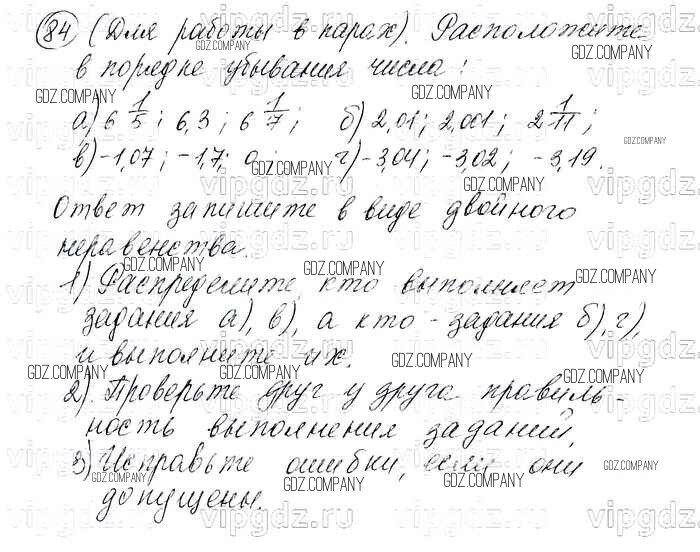 84 (Для работы в парах). Расположите
в порядке убывания числа:
а) 6 1/5; 6,3; 6 1/7; б) 2,01; 2,001; 2 1/11;
в) -1,07; -1,7; 0; г) -3,04; -3,02; -3,19.
Ответ запишите в виде двойного
неравенства.
1) Распределите, кто выполняет
задания а), в), а кто - задания б), г),
и выполните их.
2). Проверьте друг у друга правиль-
ность выполнения заданий.
3) Исправьте ошибки, если они
допущены.
GDZ.COMPANY
vipgdz.ru